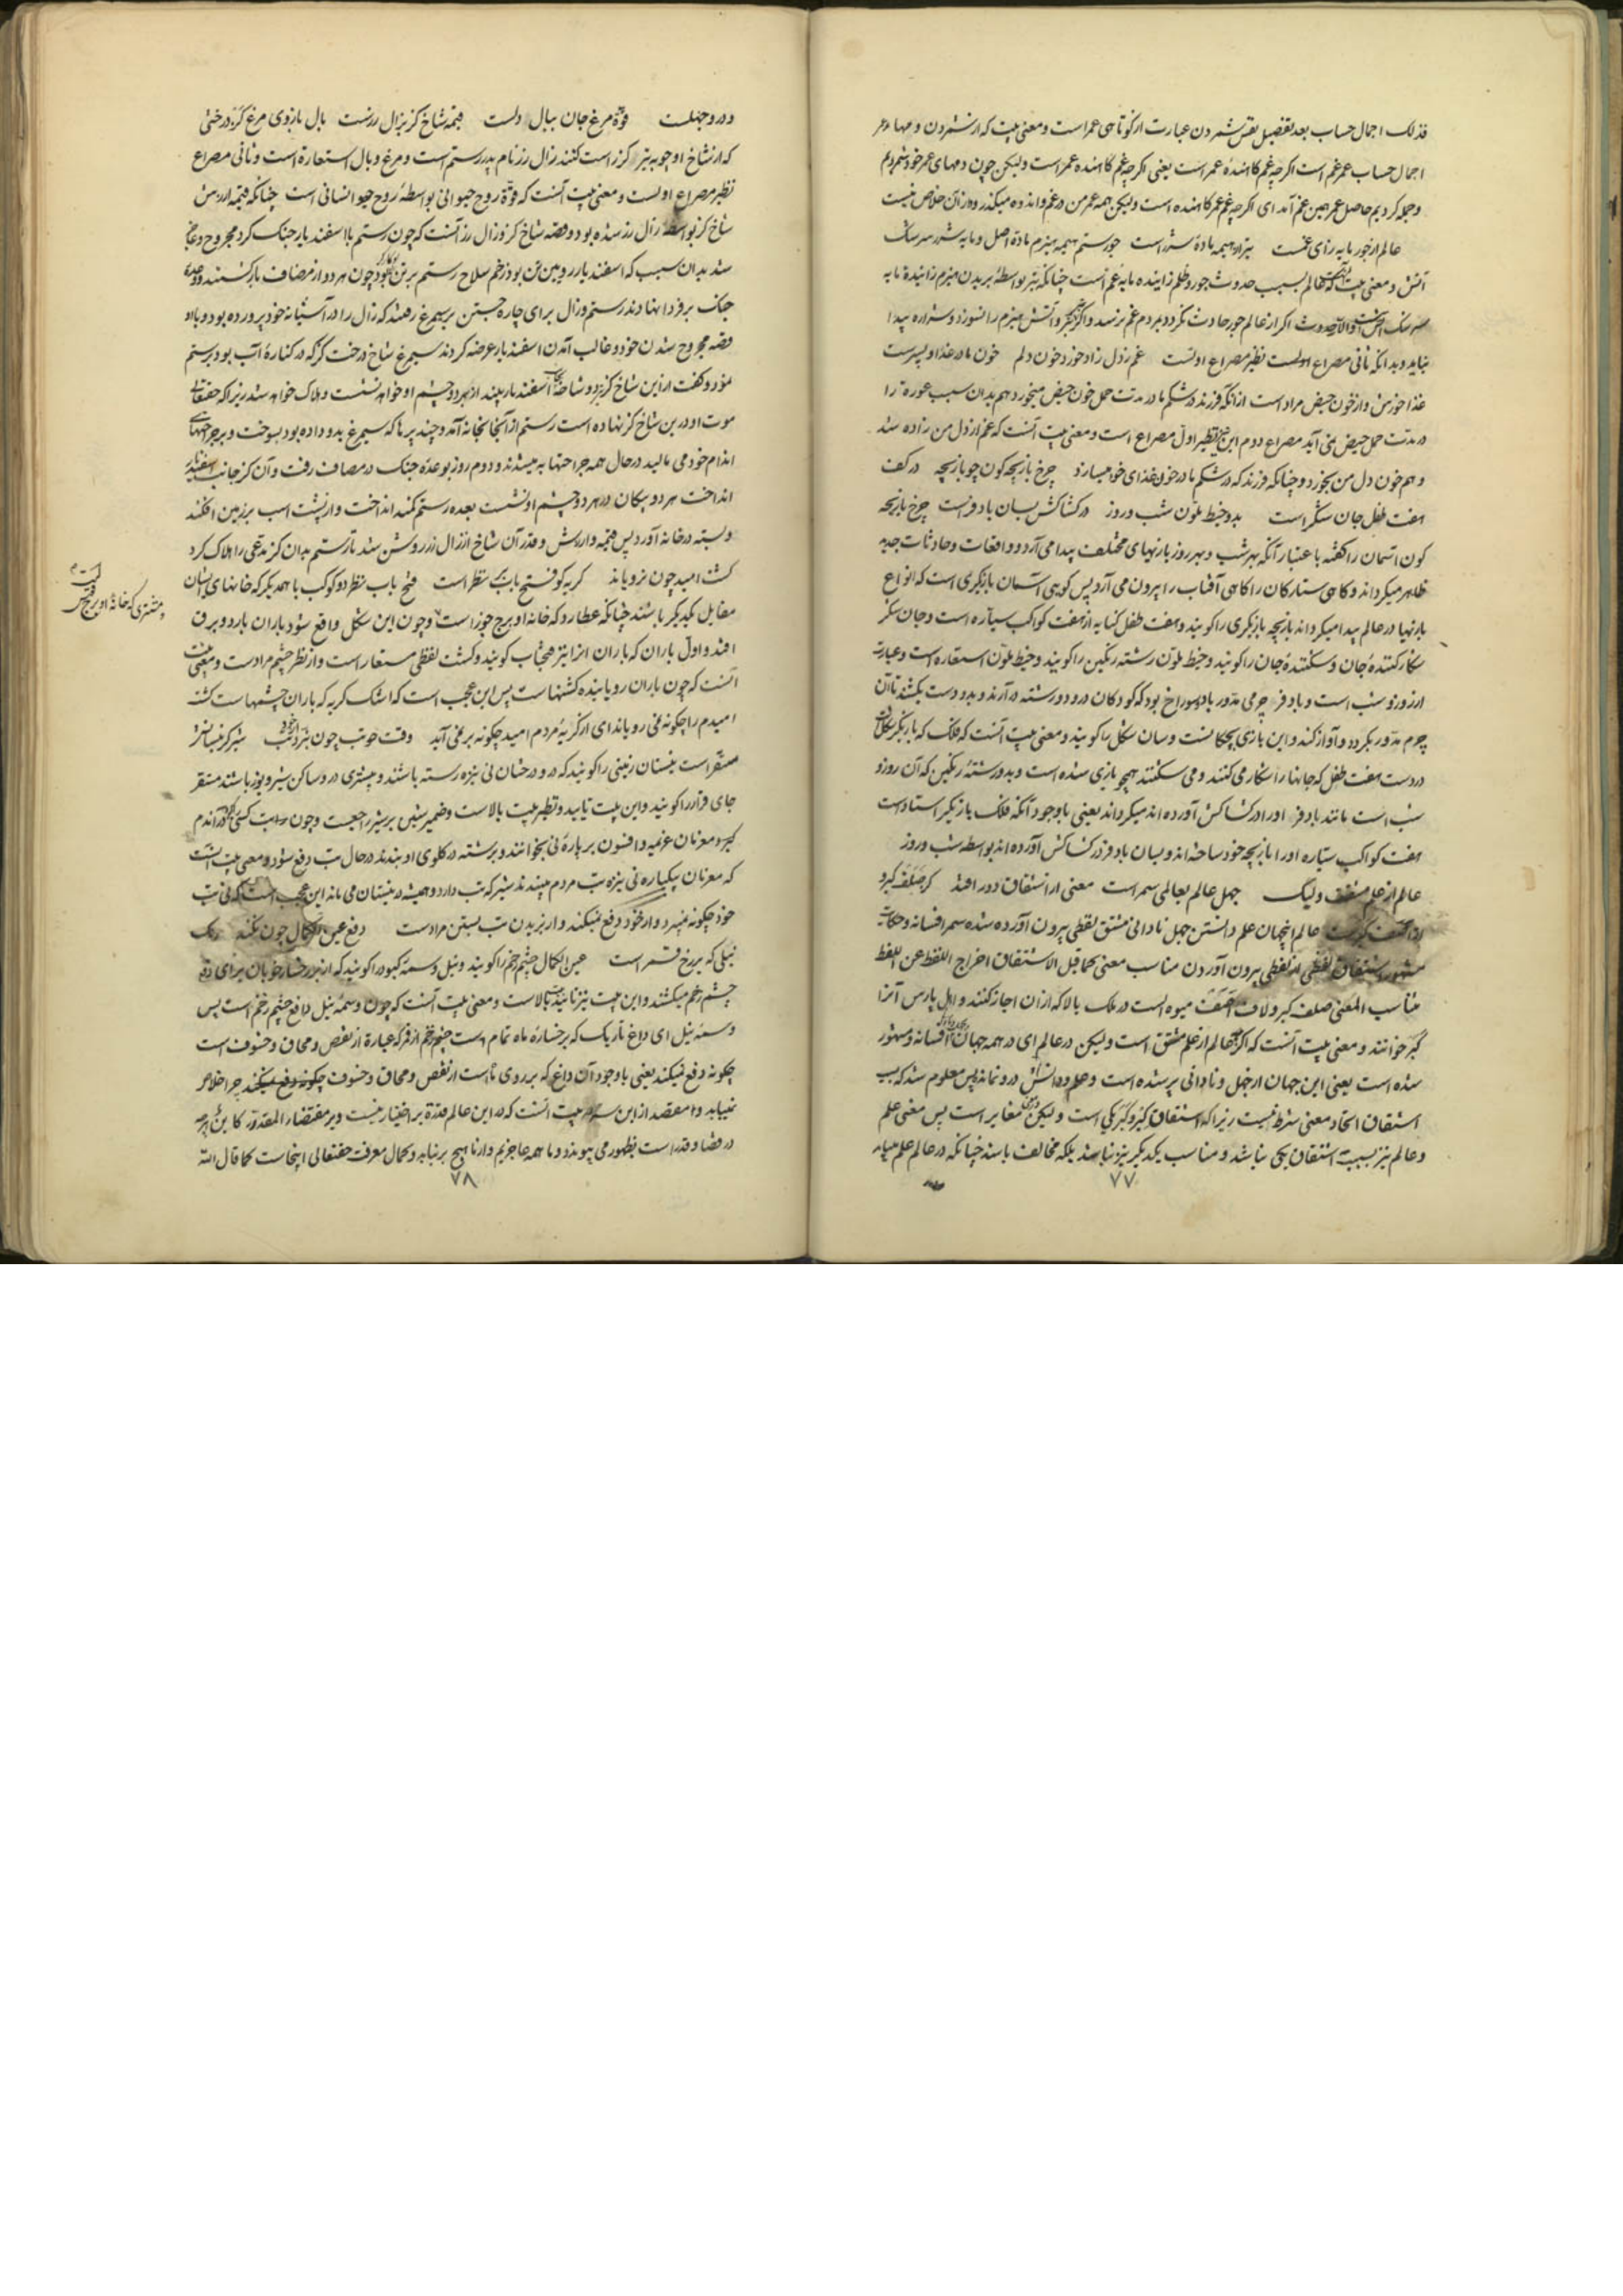 فذلک اجمال حساب بعد تفصیل یعنی شمردن عبارت از کوتاهی عمر است و معنی بیت که از شمردن دمها و
اجمال حساب عمر غم است اگرچه غم کاهندهٔ عمر است یعنی اگرچه غم کاهنده عمر است ولیکن چون دمهای عمر خود شمردیم
و جمله کردیم حاصل عمر همین غم آمد ای اگرچه غم عمر کاهنده است ولیکن همه عمر من در غم و اندوه میگذرد و از آن خلاص نیست
عالم از جور مایه زای غمست تبر از هیمه مادهٔ شرر است جور ستم هیمه هیزم مادة اصل و مایه شرر سرشک
آتش و معنی بیت آنست که عالم بسبب حدوث جور و ظلم زاینده مایه غم است چنانکه تبر بواسطهٔ بریدن هیزم زاینده مایه
سرشک آتش است اگر از عالم جور حادث نگردد بمردم غم نرسد و آتش هیزم را نسوزد و شراره پیدا
نیاید و بدانکه ثانی مصراع اولست نظیر مصراع اولست غم ز دل زاد خورد خون دلم خون مادر غذا و پسرست
غذا خورش و از خون حیض مراد است از آنکه فرزند در شکم مادر مدت حمل خون حیض میخورد هم بدان سبب عورة را
در مدت حمل حیض نمی آید مصراع دوم این نظیر اول مصراع است و معنی بیت آنست که غم از دل من زاده شد
و هم خون دل من بخورد و چنانکه فرزند که در شکم مادر خون غذای خود میسازد چرخ بازیچه کون چو بازیچه در کف
هفت طفل جان شکر است بدو خیط ملون شب و روز در کشاکش بسان بادفرست چرخ بازیچه
کون آسمان را گفته باعتبار آنکه بهر شب و بهر روز بازیهای مختلف پیدا می آرد و واقعات و حادثات جدید
ظاهر میگرداند و گاهی ستارکان را گاهی آفتاب را بیرون می آرد پس گویی آسمان بازیگری است که انواع
بازیها در عالم پیدا میگرداند بازیچه بازیگری را گویند و هفت طفل کنایه از هفت کواکب سیاره است و جان شکر
شکار کنندهٔ جان و شکنندهٔ جان را گویند و خیط ملون رشته رنگین را گویند و خیط ملون استعاره است و عبارت
از روز و شب است و بادفر چرمی مدور با دو سوراخ بود که کودکان در و دو رشته در آرند و بدو دست بکشند تا آن
چرم مدور بگردد و آواز کند و این بازی بچگانست و سان شکل را گویند و معنی بیت آنست که فلک که بازیگر شکل
در دست هفت طفل که جانها را شکار می کنند و می شکنند همچو بازی شده است و بدو رشتهٔ رنگین که آن روز و
شب است مانند بادفر او را در کشاکش آورده اند میگرداند یعنی باوجود آنکه فلک بازیگر استادست
هفت کواکب سیاره او را بازیچه خود ساخته اند و بسان بادفر در کشاکش آورده اند بواسطه شب و روز
عالم از علم مشتق ولیک جهل عالم بعالمی سمر است معنی از اشتقاق دور افتد کز صلف کبرو
عالم اینجهان علم دانستن جهل نادانی مشتق لفظی بیرون آورده شده سمر افسانه و حکایت
مشهور اشتقاق لفظی از لفظی بیرون آوردن مناسب معنی کما قیل الاشتقاق اخراج اللفظ عن اللفظ
مناسب المعنی صلف کبر و لاف اصف میوه ایست در ملک بالا که از آن اچار کنند و اهل پارس آنرا
کبر خوانند و معنی بیت آنست که اگرچه عالم از علم مشتق است ولیکن در عالم ای در همه جهان افسانه و مشهور
شده است یعنی این جهان از جهل و نادانی پر شده است و علم و دانش در و نمانده پس معلوم شد که بسبب
اشتقاق اتحاد معنی شرط نیست زیراکه اشتقاق کبر و کبر یکی است ولیکن معنی مغایر است پس معنی علم
و عالم نیز بسبب اشتقاق یکی نباشد و مناسب یکدیگر نیز نباشد بلکه مخالف باشد چنانکه در عالم علم میباید
۷۷
در و جهلست قوة مرغ جان ببال دلست قیمه شاخ کز بزال زرست بال بازوی مرغ کز درختی
که از شاخ او چوبه تیر کز راست کنند زال زر نام پدر رستم است و مرغ و بال استعاره است و ثانی مصراع
نظیر مصراع اولست و معنی بیت آنست که قوّة روح حیوانی بواسطهٔ روح انسانی است چنانکه قیمه ارزش
شاخ کز بواسطهٔ زال زر شده بود و قصه شاخ کز و زال زر آنست که چون رستم با اسفندیار جنک کرد مجروح و عاجز
شد بدان سبب که اسفندیار رویین تن بود زخم سلاح رستم بر تن او کارگر نبود چون هر دو از مصاف بازگشتند و وعدهٔ
جنک بر فردا نهادند رستم و زال برای چاره جستن بر سیمرغ رفتند که زال را در آشیانه خود پرورده بود و با او
قصه مجروح شدن خود و غالب آمدن اسفندیار عرضه کردند سیمرغ شاخ درخت گز که در کنارهٔ آب بود برستم
نمود و گفت از این شاخ کز دو شاخه اسفندیار بیند از هر دو چشم او خواهد نشست و هلاک خواهد شد زیراکه حقتعالی
موت او در بن شاخ کز نهاده است رستم از آنجا بخانه آمد و چند پر ها که سیمرغ بدو داده بود بسوخت و بر جراحتهای
اندام خود می مالید در حال همه جراحتها به میشدند و دوم روز بوعدهٔ جنک در مصاف رفت و آن کز جانب اسفندیار
انداخت هر دو پیکان در هر دو چشم او نشست بعده رستم کمند انداخت و از پشت اسب بر زمین افکند
و بسته در خانه آورد پس قیمه و ارزش و قدر آن شاخ از زال زر روشن شد تا رستم بدان کز مدعی را هلاک کرد
کشت امید چون نرویاند گریه کو فتح باب نظر است فتح باب نظر دو کوکب با همدیگر که خانهای ایشان
مقابل یکدیگر باشند چنانکه عطارد که خانه او برج جوزاست و چون این شکل واقع شود باران بارد و برق
افتد و اول باران که باران آنرا نیز فتح باب گویند و کشت لفظی مستعار است و از نظر چشم مرادست و معنی بیت
آنست که چون باران رویاننده کشتهاست پس این عجب است که اشک گریه که باران چشمهاست کشت
امیدم را چگونه نمی رویاند ای از گریهٔ مردم امید چگونه بر نمی آید وقت خوتب چون نبرد تب شیر گر نیستانش
مستقر است نیستان زمینی را گویند که در و درختان نی نیزه رسته باشند و بیشتری در و ساکن شیر و یوز باشند مستقر
جای قرار را گویند و این بیت تایید و نظیر بیت بالاست و ضمیر شین بر شیر راجعست و چون تب کسی که در اندام
گیرد معزمان عزیمه و افسون بر پارهٔ نی بخوانند و برشته در گلوی او بندند در حال تب دفع شود و معنی بیت آنست
که معزمان بیکپاره نی نیزه تب مردم میبندند شیر که تب دارد و همیشه در نیستان می ماند این عجب است که نی تب
خود چگونه نمیبرد و از خود دفع نمیکند و از بریدن تب بستن مرادست دفع عین الکمال چون نکند رنک
نیلی که بر رخ قمر است عین الکمال چشم زخم را گویند و نیل وسمه کبود را گویند که از بر رخسار خوبان برای دفع
چشم زخم میکشند و این بیت نیز تائید بیت بالاست و معنی بیت آنست که چون وسمهٔ نیل دافع چشم زخم است پس
وسمهٔ نیل ای داغ تاریک که بر رخسارهٔ ماه تمام است چشم زخم از قمر که عبارة از نقص و محاق و خسوف است
چگونه دفع نمیکند یعنی باوجود آن داغ که بر روی ماه است از نقص و محاق و خسوف چرا خلاص
نمییابد و مقصد از این سه بیت آنست که در این عالم قدرة بر اختیار نیست و بر مقتضاء المقدر کاین هرچه
در قضا و قدر است بظهور می پیوندد و ما همه عاجزیم و از ما هیچ برنیاید و کمال معرفت حقتعالی اینجاست کما قال الله
۷۸
و مشتری که خانهٔ او برج قوس است